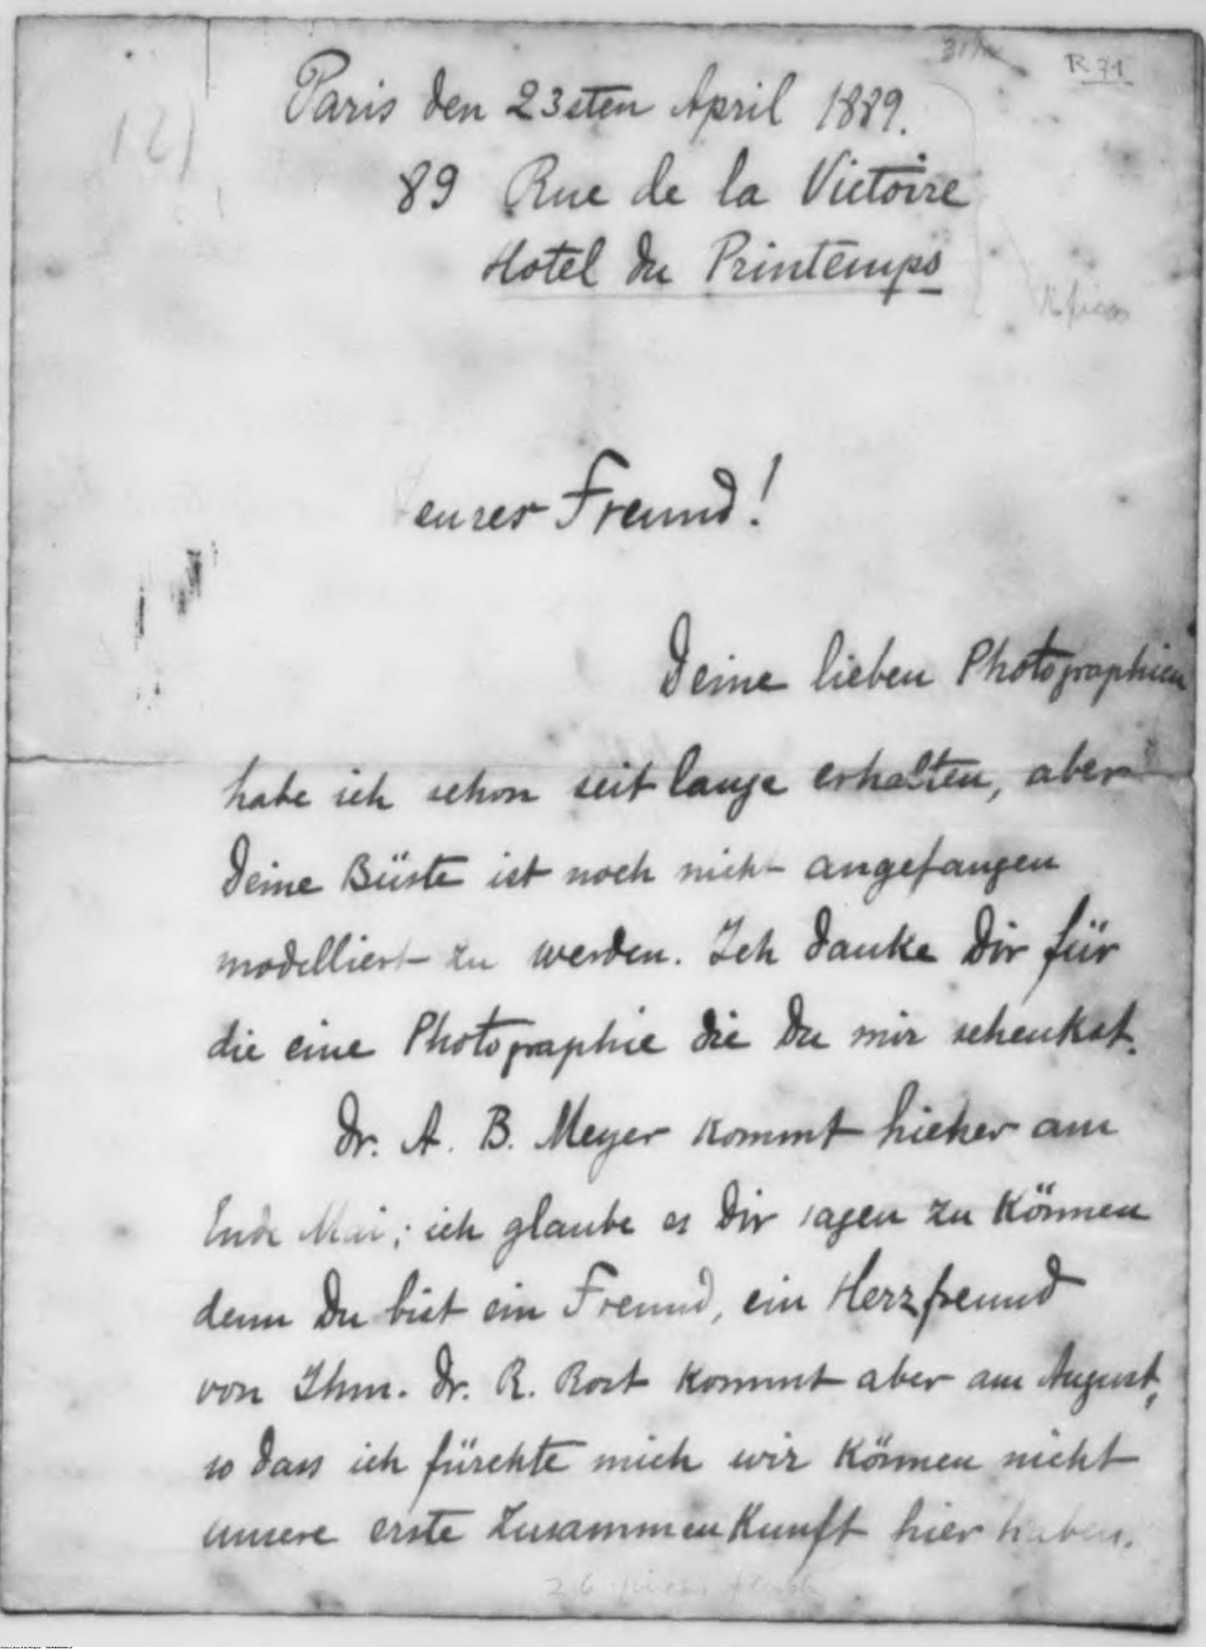 R 71
Paris den 23sten April 1889.
89 Rue de la Victoire
Hotel du Printemps
eurer Freund!
Deine lieben Photographien
habe ich schon seit lange erhalten, aber
Deine Büste ist noch nicht angefangen
modelliert zu werden. Ich danke Dir für
die eine Photographie die Du mir schenkst.
Dr. A. B. Meyer kommt hieher am
Ende Mai; ich glaube es Dir sagen zu können
denn Du bist ein Freund, ein Herzfreund
von Ihm. Dr. R. Rost kommt aber am August,
so dass ich fürchte mich wir können nicht
unsere erste Zusammenkunft hier haben.